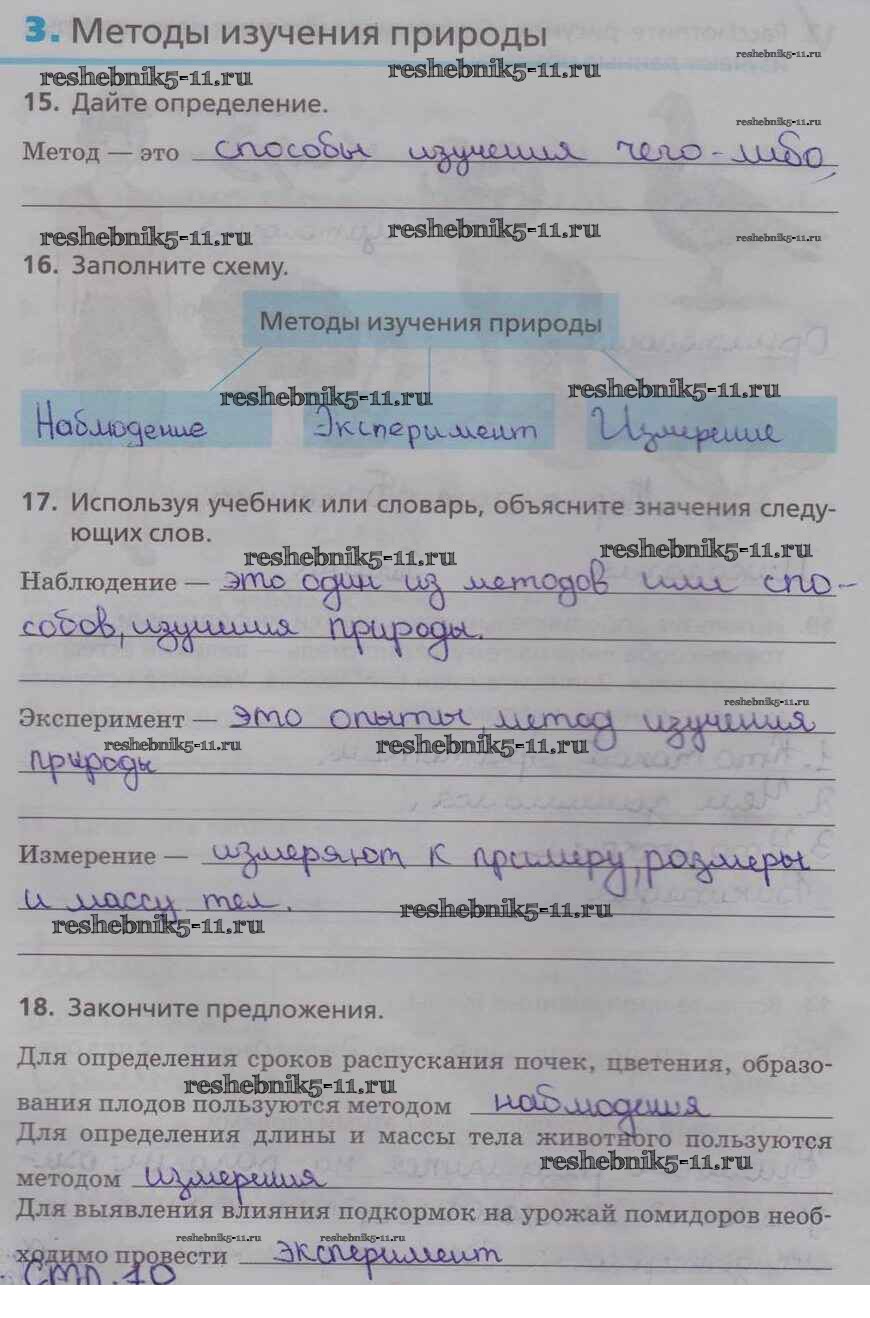 3. Методы изучения природы
reshebnik5-11.ru reshebnik5-11.ru reshebnik5-11.ru
15. Дайте определение.
reshebnik5-11.ru
Метод — это способы изучения чего-либо,
reshebnik5-11.ru reshebnik5-11.ru reshebnik5-11.ru
16. Заполните схему.
Методы изучения природы
reshebnik5-11.ru reshebnik5-11.ru
Наблюдение Эксперимент Измерение
17. Используя учебник или словарь, объясните значения следу-
ющих слов.
reshebnik5-11.ru reshebnik5-11.ru
Наблюдение — это один из методов или спо-
собов, изучения природы.
reshebnik5-11.ru
Эксперимент — это опыты, метод изучения
reshebnik5-11.ru reshebnik5-11.ru
природы
Измерение — измеряют к примеру, размеры
и массу тел.
reshebnik5-11.ru reshebnik5-11.ru
18. Закончите предложения.
Для определения сроков распускания почек, цветения, образо-
reshebnik5-11.ru
вания плодов пользуются методом наблюдения
Для определения длины и массы тела животного пользуются
reshebnik5-11.ru
методом измерения
Для выявления влияния подкормок на урожай помидоров необ-
reshebnik5-11.ru reshebnik5-11.ru
ходимо провести эксперимент
стр. 10